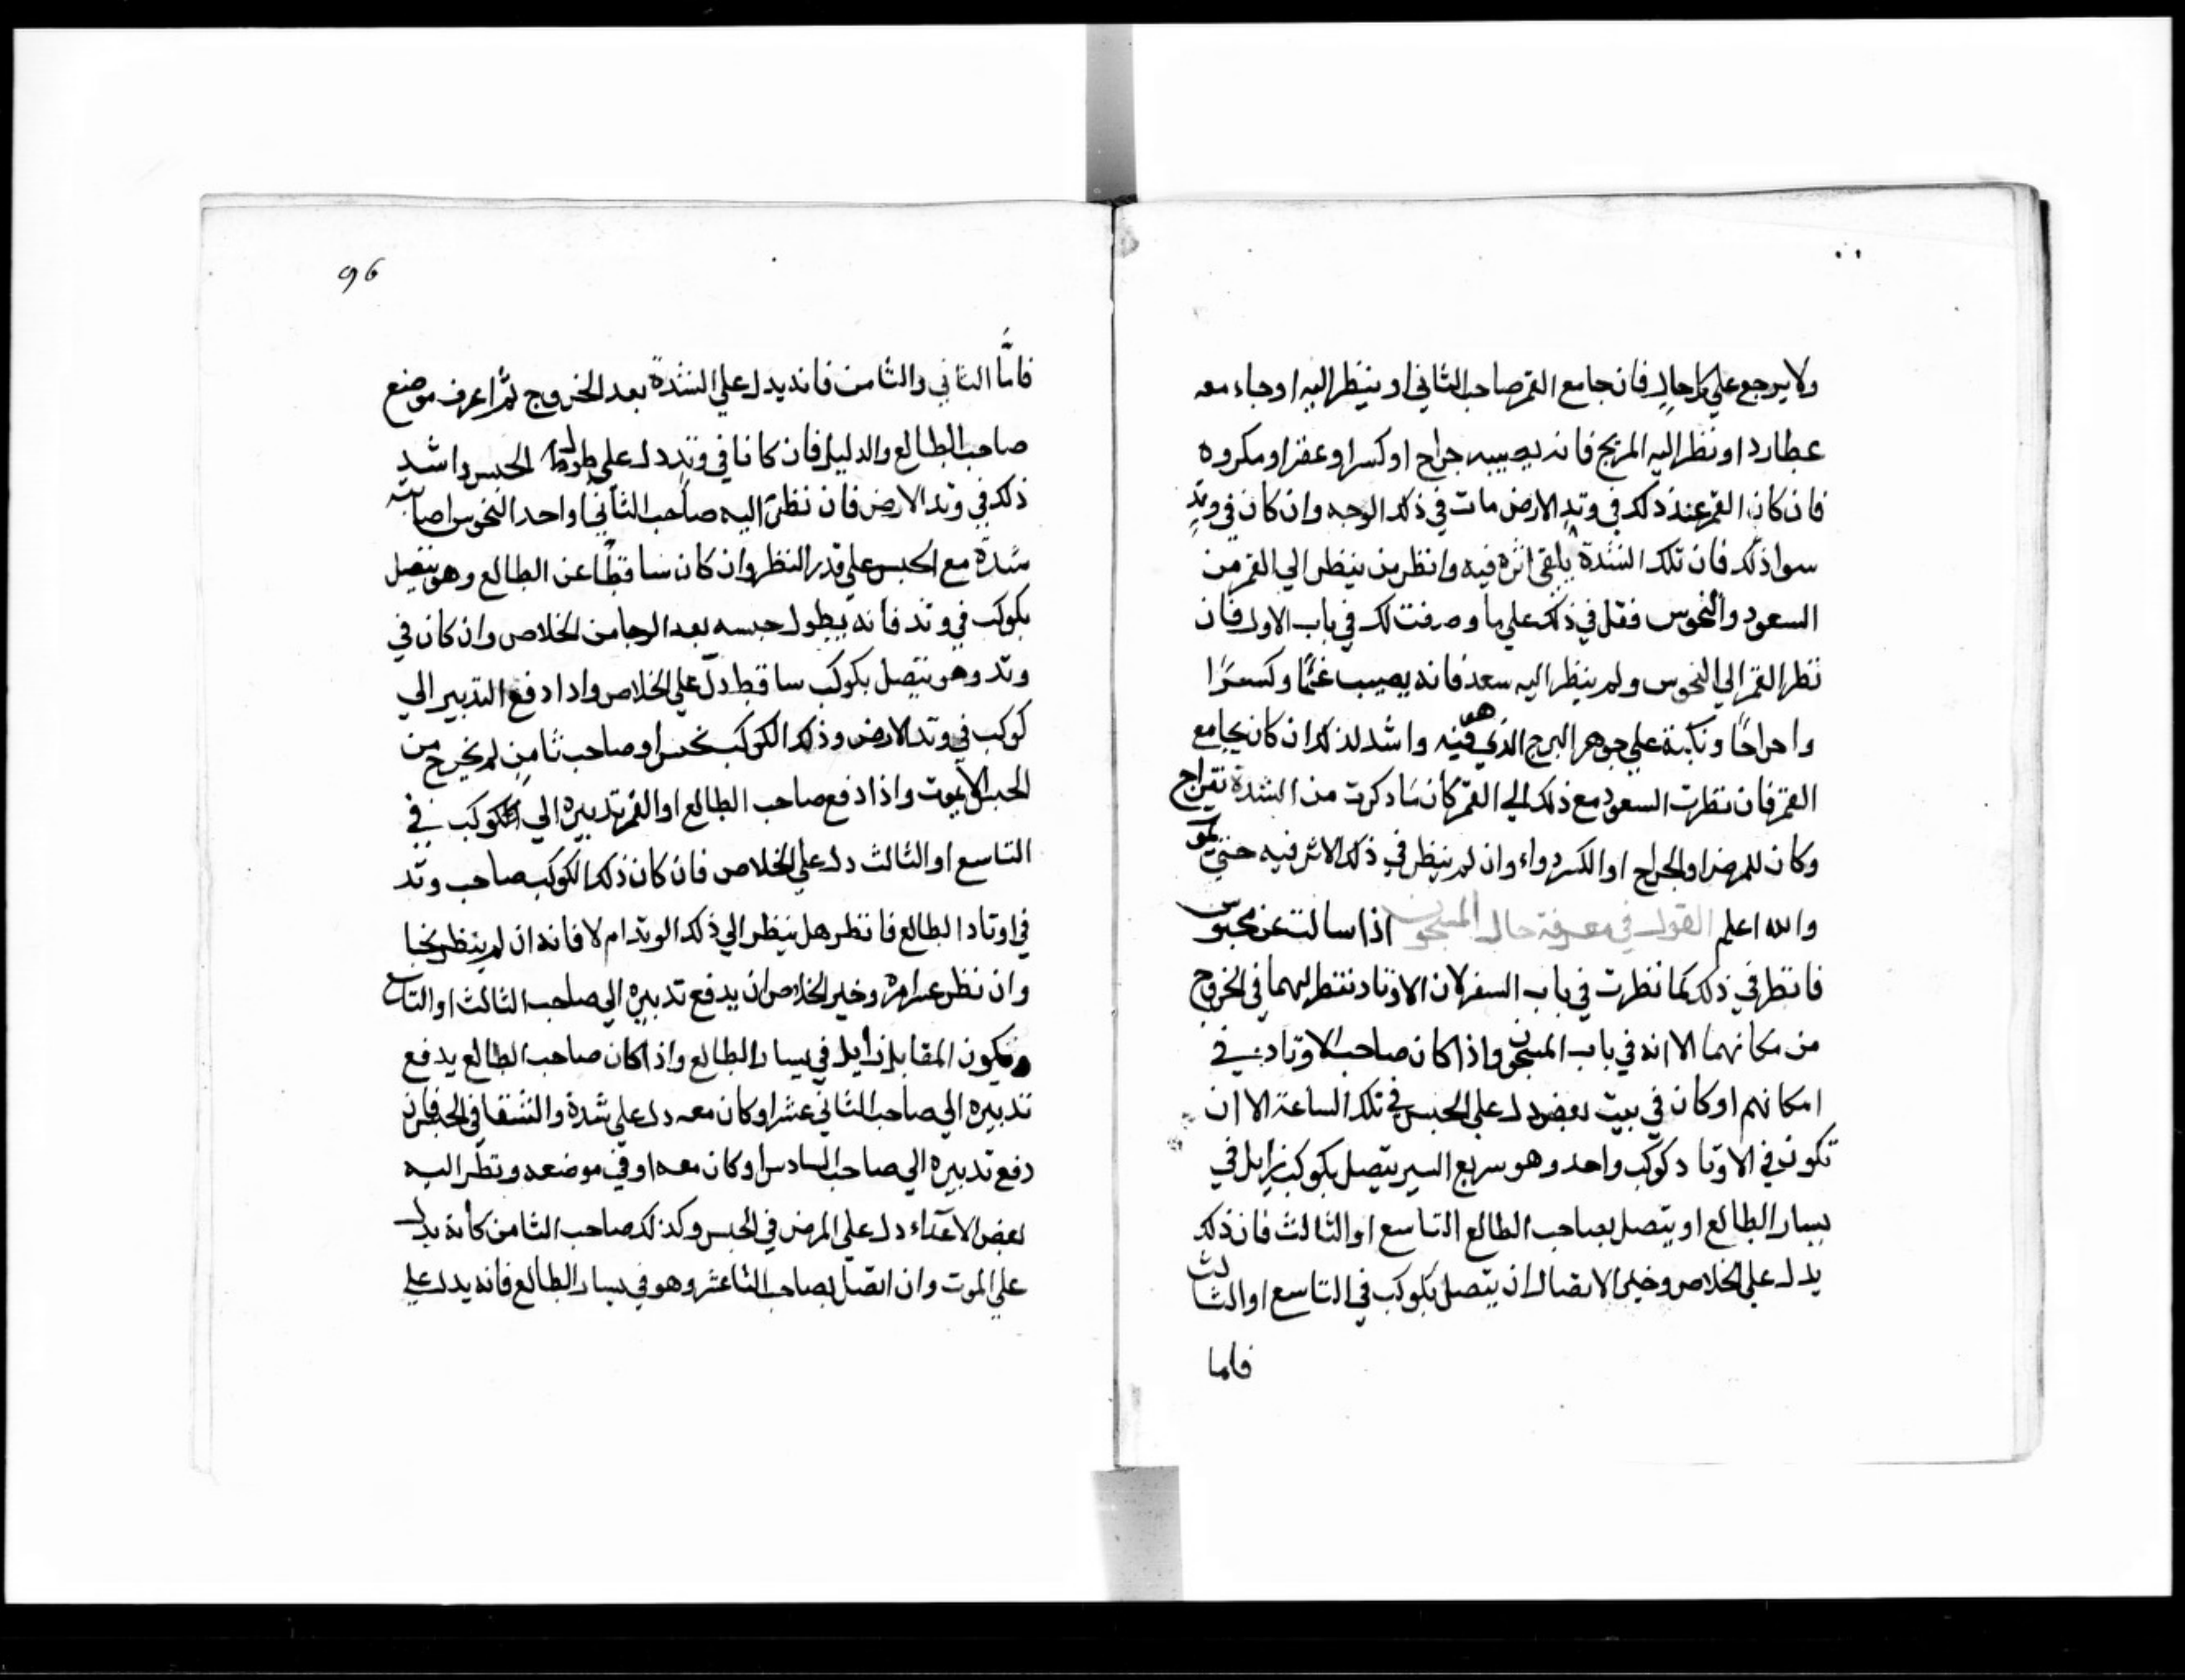 ولا يرجع علي كل حال فان جامع القمر صاحب الثاني او ينظر اليه او جاء معه
عطارد او نظر اليه المريخ فانه يصيبه جراح او كسر او عقر او مكروه
فان كان القمر عند ذلك في وتد الارض مات في ذلك الوجه وان كان في وتد
سوا ذلك فان تلك الشدة يلقى اثره فيه وانظر من ينظر الي القمر من
السعود والنحوس فقل في ذلك علي ما وصفت لك في باب الاول فان
نظر القمر الي النحوس ولم ينظر اليه سعد فانه يصيب غمًا وكسرًا
واحراحًا ونكبة علي جوهر البرج الذي هو فيه واشد لذلك ان كان يجامع
القمر فان نظرت السعود مع ذلك الي القمر كان ما ذكرت من الشدة
وكان للمرض او الجراح او الكسر دواء وان لم ينظر في ذلك الاثر فيه حتي يموت
والله اعلم القول في معرفة حال المسجون اذا سالت عن محبوس
فانظر في ذلك كما نظرت في باب السفر لان الاوتاد تنظر اليهما في الخروج
من مكانهما الا انه في باب المسجون واذا كان صاحب الاوتاد في
امكانهم او كان في بيت بعض دل علي الحبس في تلك الساعة الا ان
تكون في الاوتاد كوكب واحد وهو سريع السير يتصل بكوكب زايل في
يسار الطالع او يتصل بصاحب الطالع التاسع او الثالث فان ذلك
يدل علي الخلاص وخير الاتصال ان يتصل بكوكب في التاسع او الثالث
فاما
96
فامّا الثاني والثامن فانه يدل علي الشدة بعد الخروج ثم اعرف موضع
صاحب الطالع والدليل فان كانا في وتد دل علي طول الحبس واشد
ذلك في وتد الارض فان نظر اليه صاحب الثاني او احد النحوس اصابته
شدة مع الحبس علي قدر النظر وان كان ساقطًا عن الطالع وهو يتصل
بكوكب في وتد فانه يطول حبسه بعد الرجا من الخلاص وان كان في
وتد وهو يتصل بكوكب ساقط دلّ علي الخلاص واذا دفع التدبير الي
كوكب في وتد الارض وذلك الكوكب نحس او صاحب ثامن لم يخرج من
الحبس الا يموت واذا دفع صاحب الطالع او القمر تدبيره الي الكوكب في
التاسع او الثالث دل علي الخلاص فان كان ذلك الكوكب صاحب وتد
في اوتاد الطالع فانظر هل ينظر الي ذلك الوتد ام لا فانه ان لم ينظر نجا
وان نظر عسر امره وخير الخلاص ان يدفع تدبيره الي صاحب الثالث او التاسع
ويكون المقابل زايل في يسار الطالع واذا كان صاحب الطالع يدفع
تدبيره الي صاحب الثاني عشر او كان معه دل علي شدة والشقا في الحبس فان
دفع تدبيره الي صاحب السادس او كان معه او في موضعه ونظر اليه
بعض الاعداء دل علي المرض في الحبس وكذلك صاحب الثامن كانه يدل
علي الموت وان اتصل بصاحب الثاعشر وهو في يسار الطالع فانه يدل علي